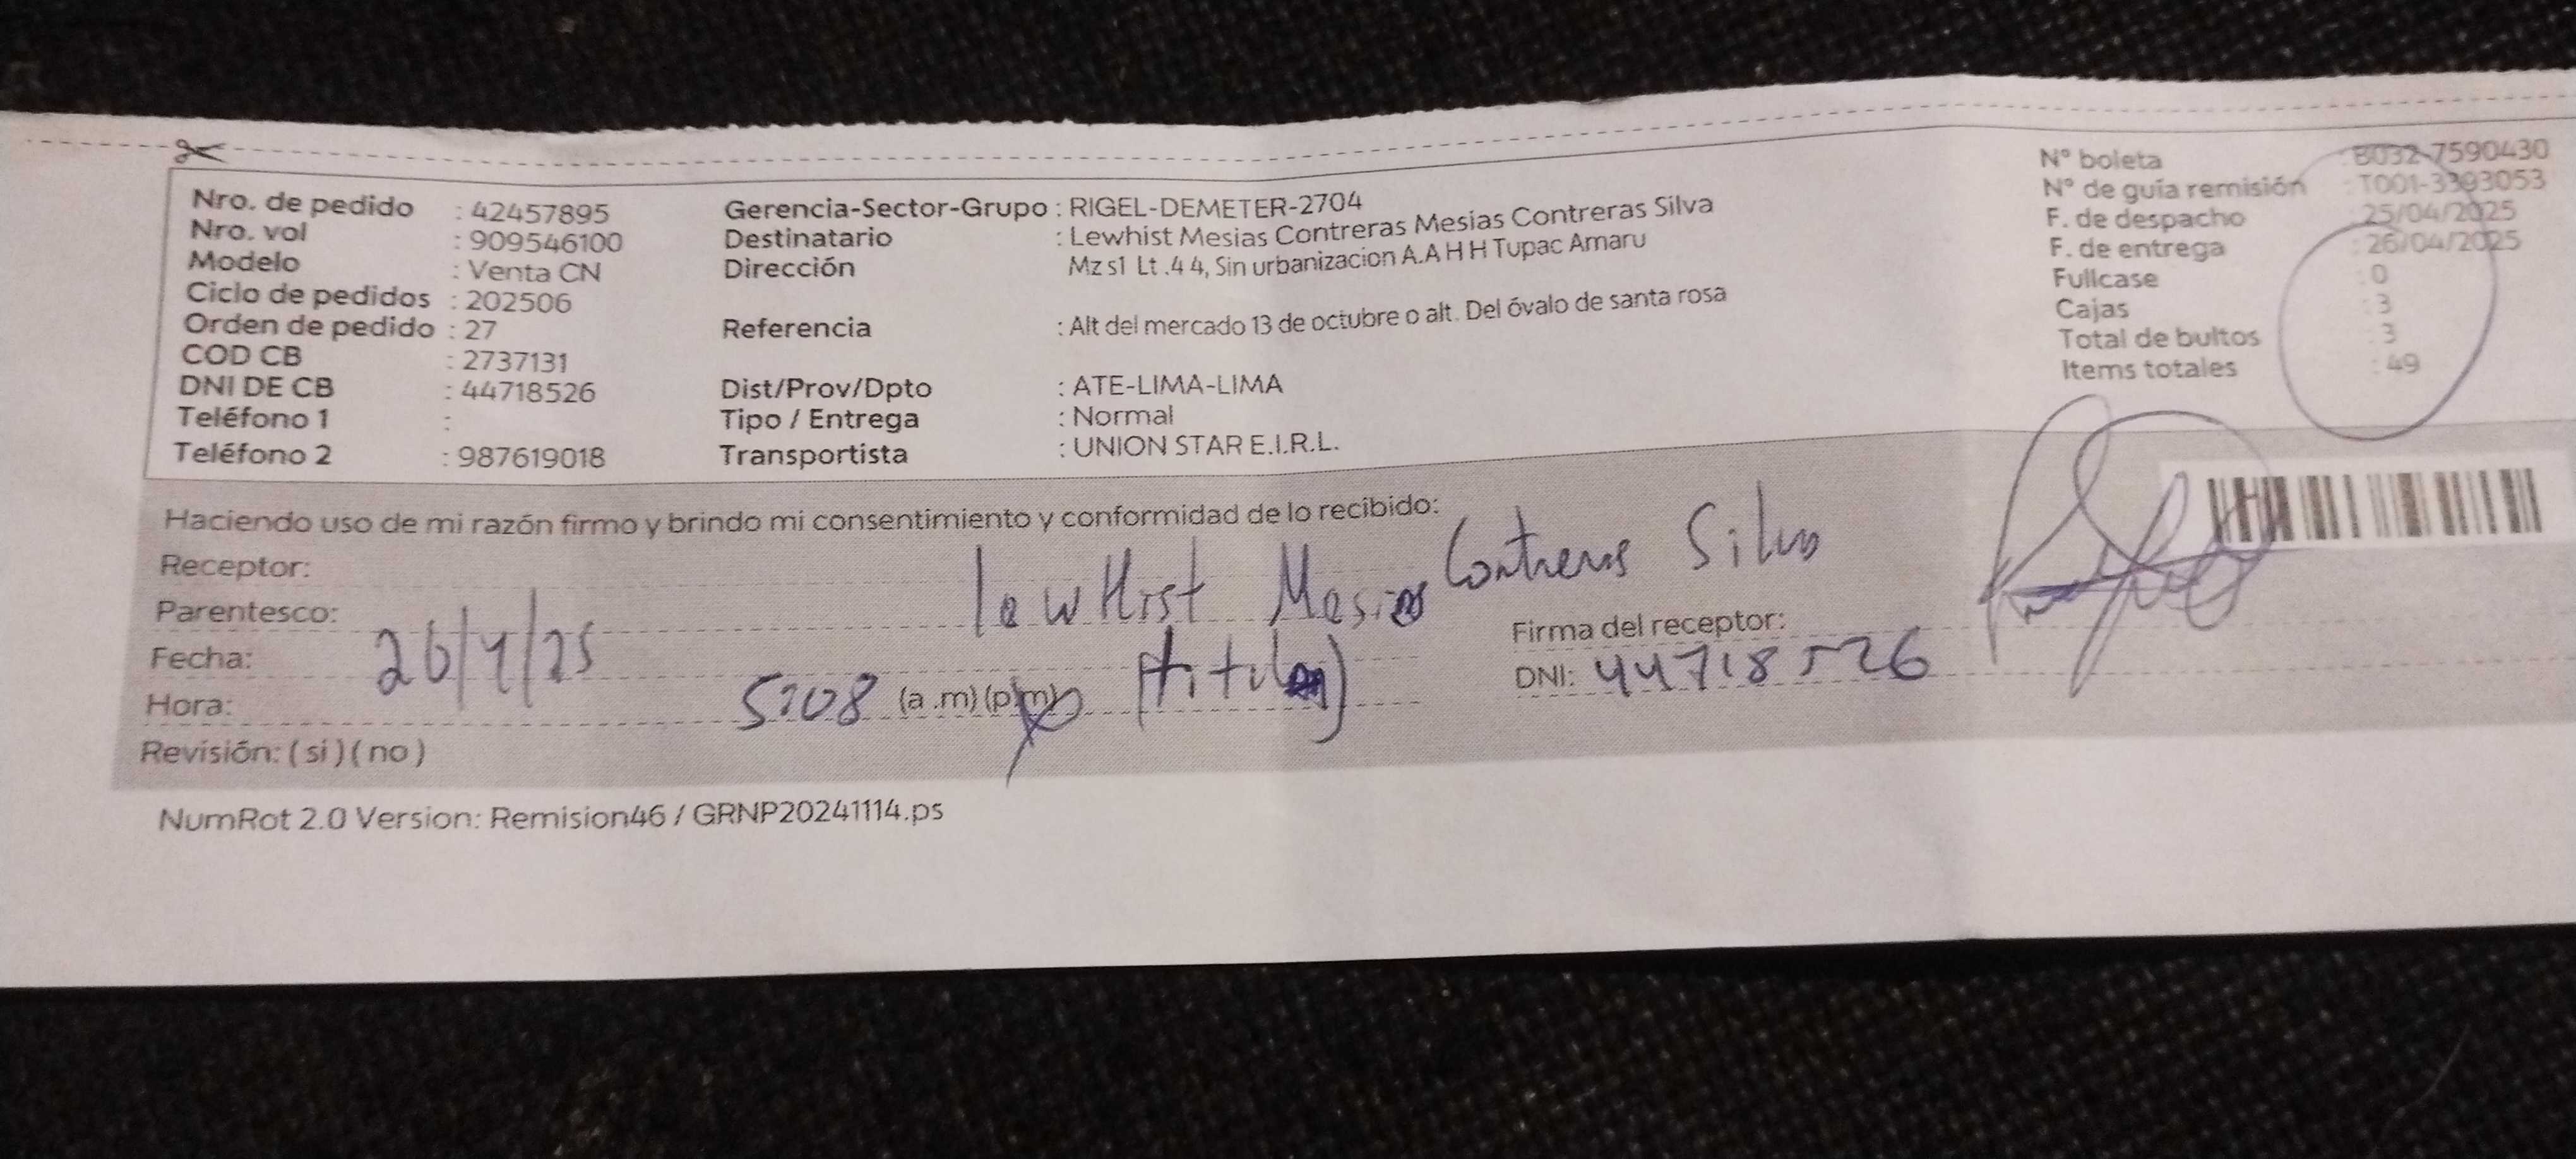 Nro. de pedido : 42457895
Nro. vol : 909546100
Modelo : Venta CN
Ciclo de pedidos : 202506
Orden de pedido : 27
COD CB : 2737131
DNI DE CB : 44718526
Teléfono 1 :
Teléfono 2 : 987619018
Gerencia-Sector-Grupo : RIGEL-DEMETER-2704
Destinatario : Lewhist Mesias Contreras Mesias Contreras Silva
Dirección Mz s1 Lt .4 4, Sin urbanizacion A.A H H Tupac Amaru
Referencia : Alt del mercado 13 de octubre o alt. Del óvalo de santa rosa
Dist/Prov/Dpto : ATE-LIMA-LIMA
Tipo / Entrega : Normal
Transportista : UNION STAR E.I.R.L.
N° boleta : B032-7590430
N° de guía remisión : T001-3393053
F. de despacho : 25/04/2025
F. de entrega : 26/04/2025
Fullcase : 0
Cajas : 3
Total de bultos : 3
Items totales : 49
Haciendo uso de mi razón firmo y brindo mi consentimiento y conformidad de lo recibido:
Receptor: lewHist Mesias Contreras Silva
Parentesco: (titular)
Fecha: 26/4/25
Hora: 5:08 (a .m) (p.m)
Revisión: ( si ) ( no )
Firma del receptor:
DNI: 44718526
NumRot 2.0 Version: Remision46 / GRNP20241114.ps